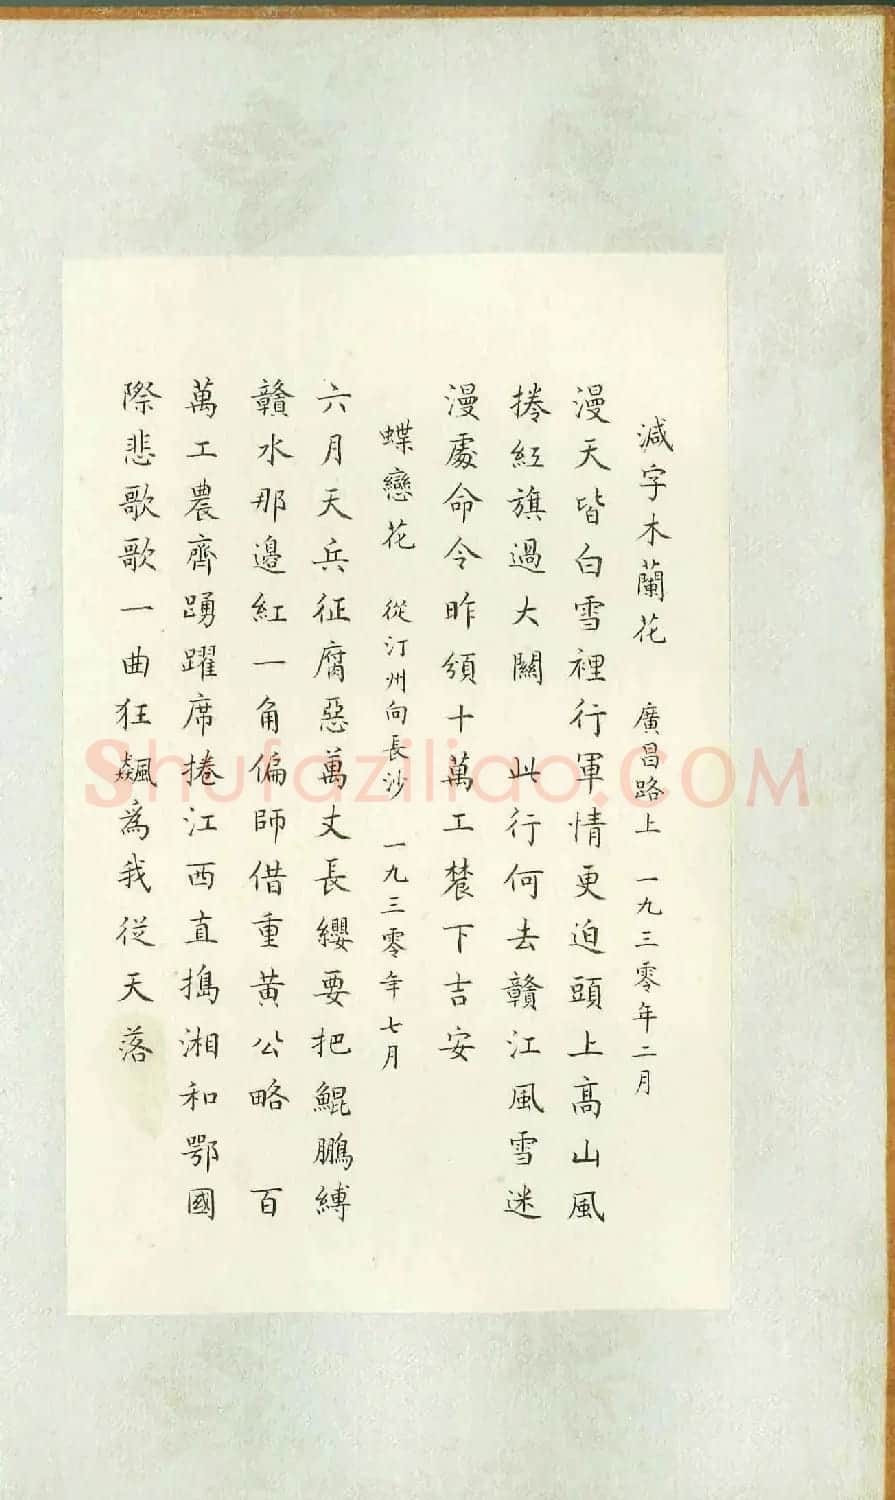 減字木蘭花 廣昌路上 一九三零年二月
漫天皆白雪裡行軍情更迫頭上高山風
捲紅旗過大關 此行何去贛江風雪迷
漫處命令昨頒十萬工農下吉安
蝶戀花 從汀州向長沙 一九三零年七月
六月天兵征腐惡萬丈長纓要把鯤鵬縛
贛水那邊紅一角偏師借重黃公略 百
萬工農齊踴躍席捲江西直搗湘和鄂國
際悲歌歌一曲狂飆為我從天落
Shufaziliao.COM